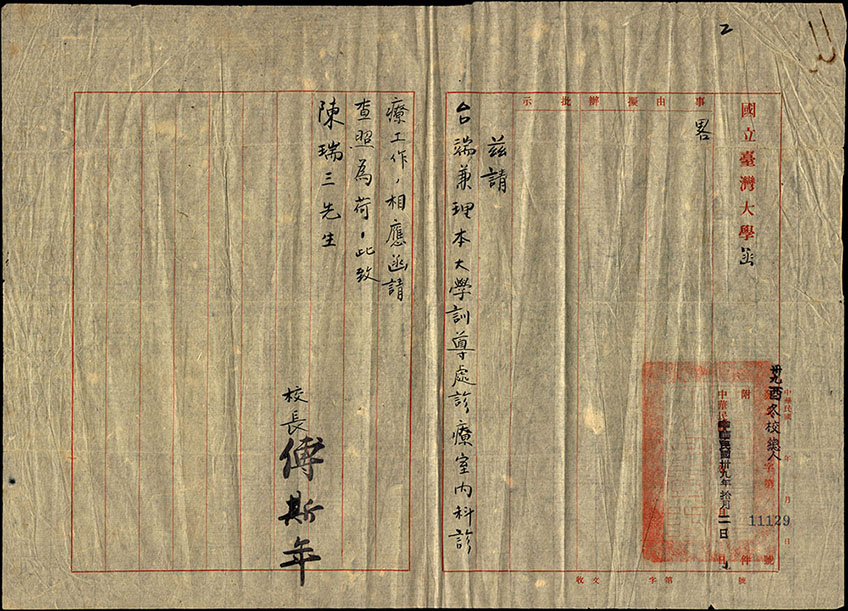 2
國立臺灣大學函
事由擬辦批示
畧
卅九酉冬校總人字第11129號
中華民國卅九年拾月二日
附件
茲請
台端兼理本大學訓導處診療室內科診
療工作，相應函請
查照為荷。此致
陳瑞三先生
校長傅斯年
收文字第號